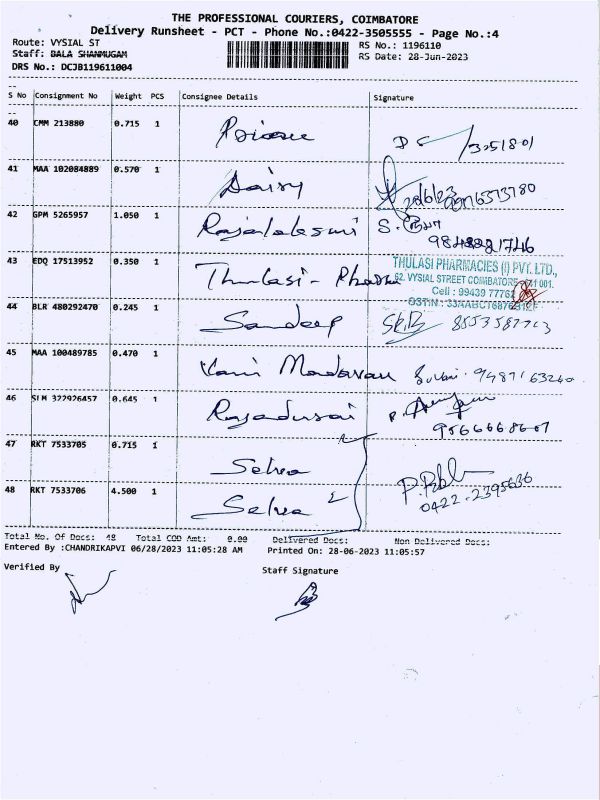 THE PROFESSIONAL COURIERS, COIMBATORE
Delivery Runsheet - PCT - Phone No.:0422-3505555 - Page No.:4
Route: VYSIAL ST
RS No.: 1196110
Staff: BALA SHANMUGAM
RS Date: 28-Jun-2023
DRS No.: DCJB119611004
S No Consignment No Weight PCS Consignee Details Signature
40 CMM 213880 0.715 1
41 MAA 102084889 0.570 1 Daisy
42 GPM 5265957 1.050 1 Rajalakshmi S.
43 EDQ 17513952 0.350 1 Thulasi - Pharma
THULASI PHARMACIES (I) PVT. LTD.,
62, VYSIAL STREET COIMBATORE - 641 001.
Cell : 99439 77762
44 BLR 480292470 0.245 1 Sandeep
45 MAA 100489785 0.470 1 Vani Madavan
46 SLM 322926457 0.645 1 Rajadurai
47 RKT 7533705 0.715 1 Selva
48 RKT 7533706 4.500 1 Selva
0422-2395636
Total No. Of Docs: 48 Total COD Amt: 0.00 Delivered Docs: Non Delivered Docs:
Entered By :CHANDRIKAPVI 06/28/2023 11:05:28 AM Printed On: 28-06-2023 11:05:57
Verified By Staff Signature